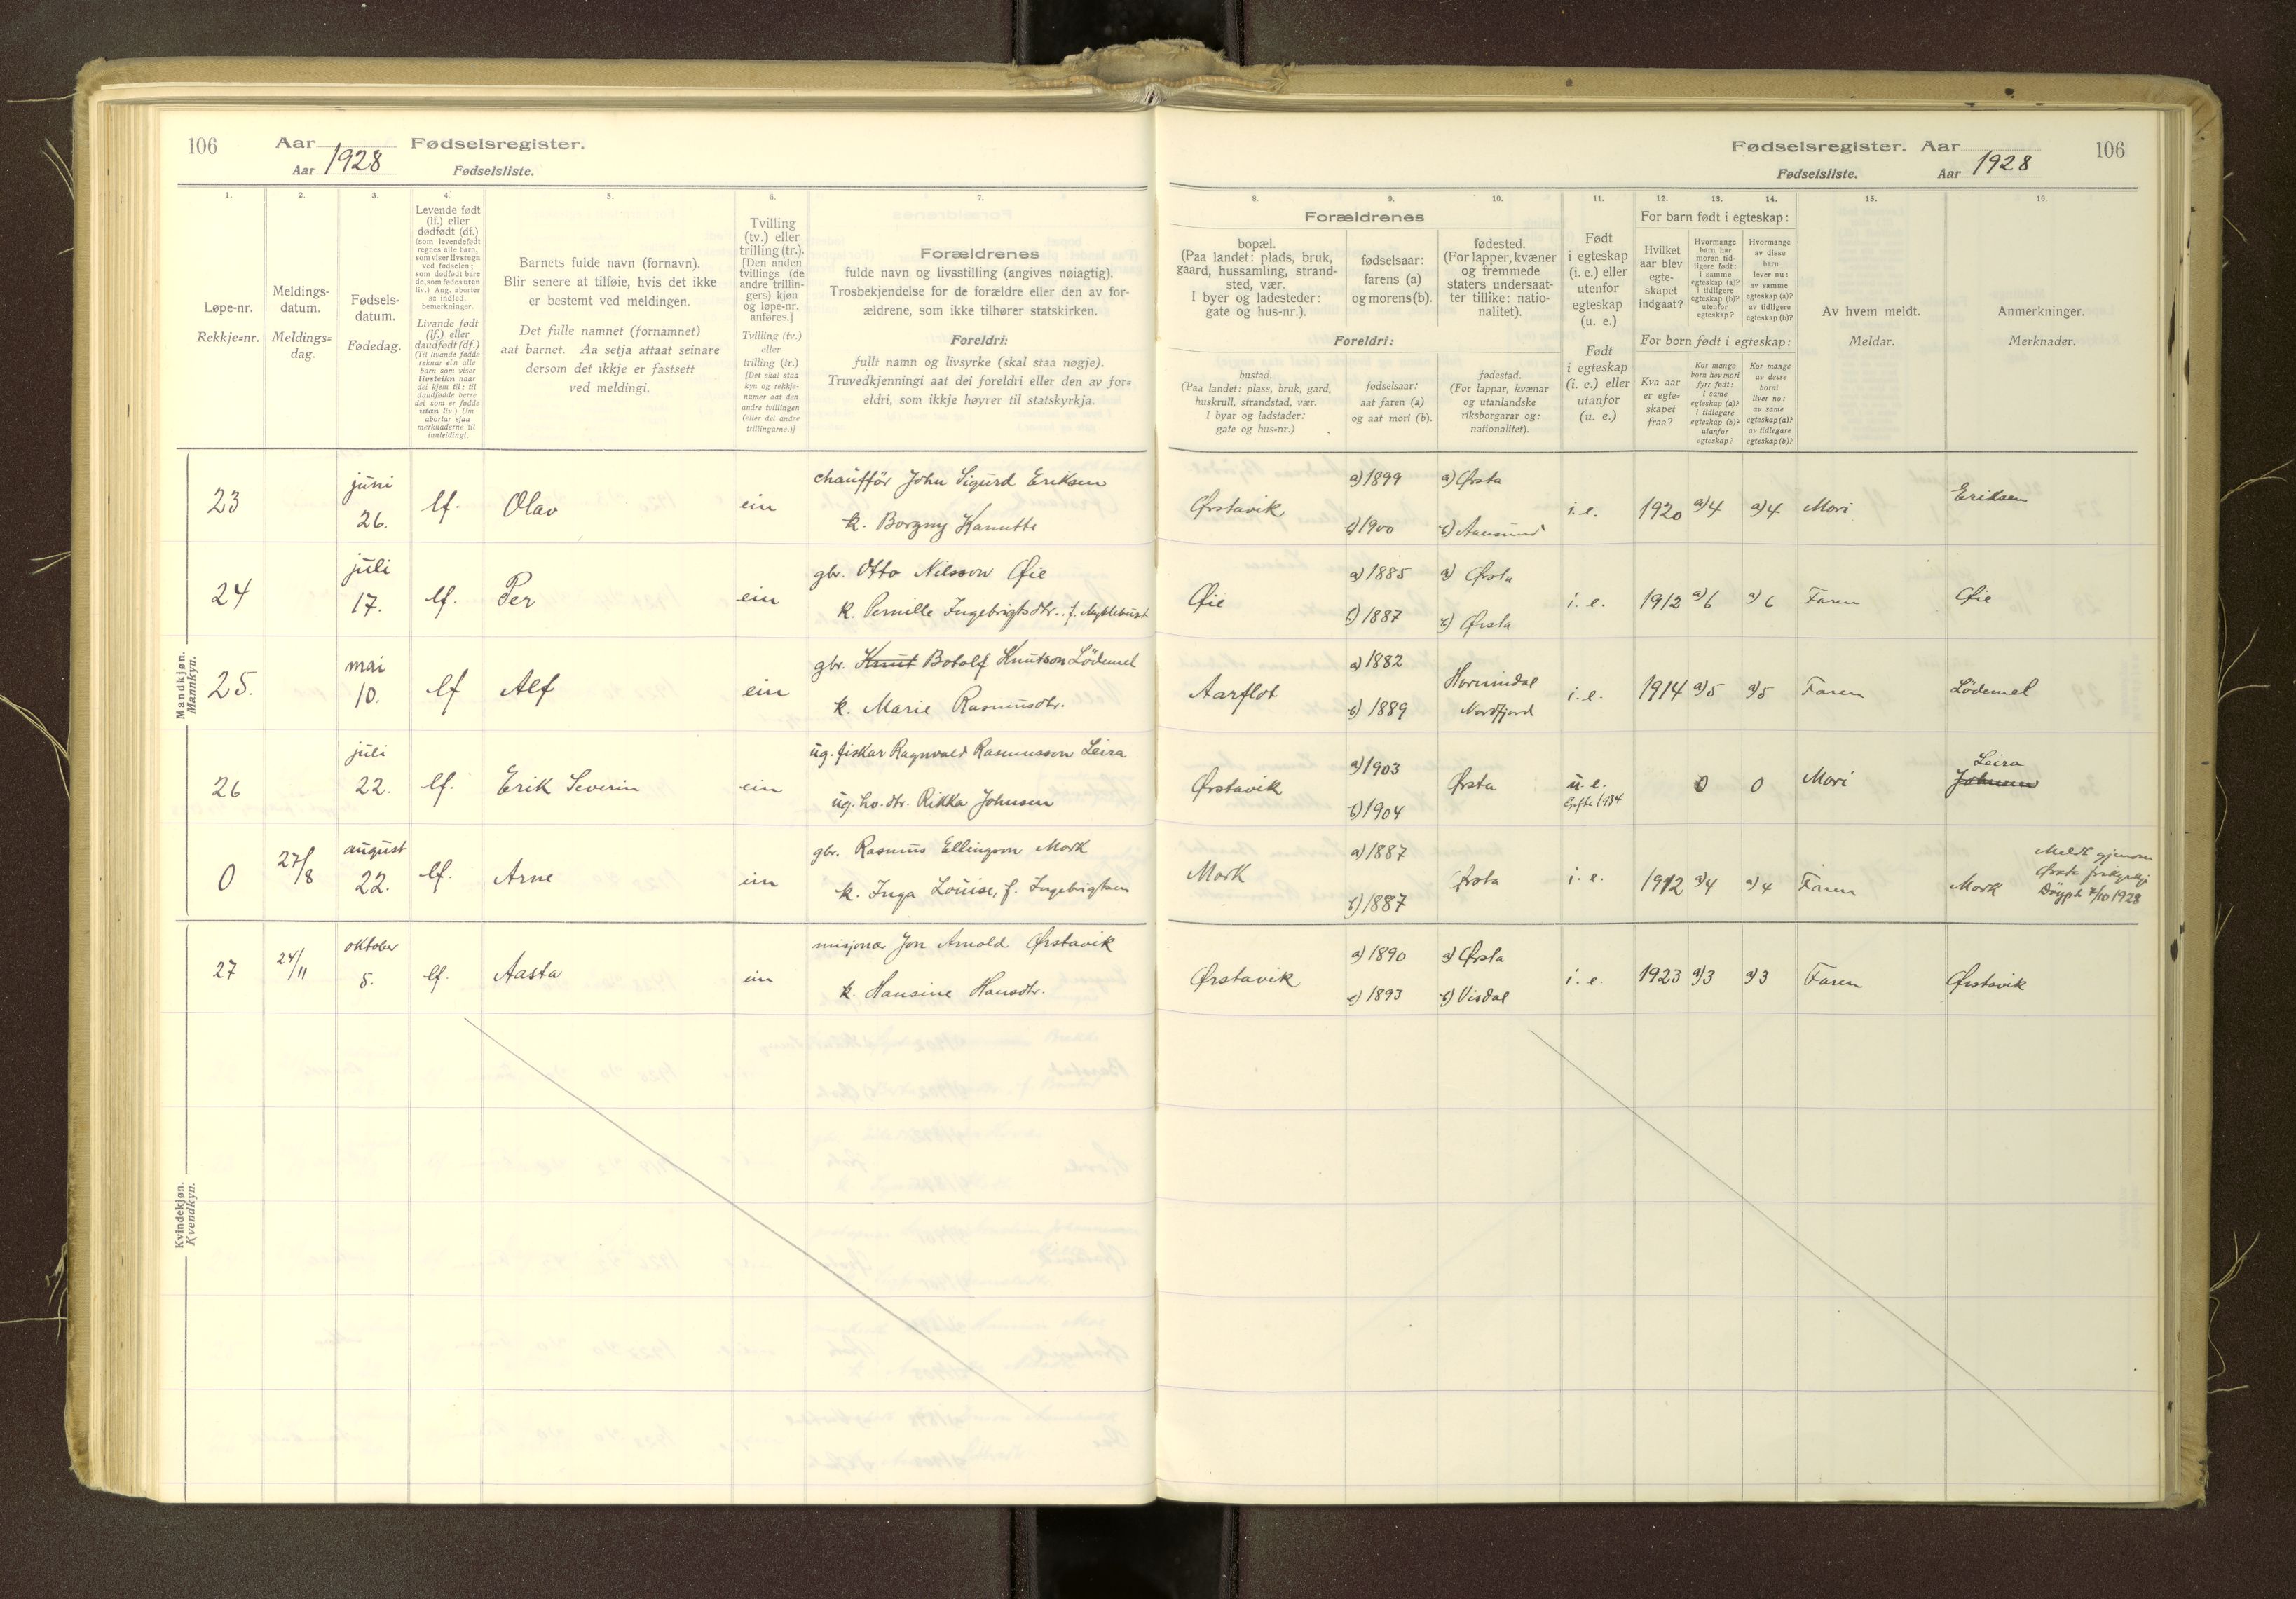 106
Aar
Fødselsregister.
Aar 1928
Fødselsliste.
Fødselsregister. Aar
106
Fødselsliste.
Aar 1928
1.
Løpe-nr.
Rekkje-nr.
2.
Meldings-
datum.
Meldings-
dag.
3.
Fødsels-
datum.
Fødedag.
4.
Levende født
(lf.) eller
dødfødt (df.)
(som levendefødt
regnes alle barn,
som viser livstegn
ved fødselen;
som dødfødt bare
de, som fødes uten
liv.) Ang. aborter
se indled.
bemerkninger.
Livande født
(lf.) eller
daudfødt (df.)
(Til livande fødde
reknar ein alle
barn som viser
livsteikn naar
dei kjem til; til
daudfødde berre
dei som er fødde
utan liv.) Um
abortar sjaa
merknaderne til
innleidingi.
5.
Barnets fulde navn (fornavn).
Blir senere at tilføie, hvis det ikke
er bestemt ved meldingen.
Det fulle namnet (fornamnet)
aat barnet. Aa setja attaat seinare
dersom det ikkje er fastsett
ved meldingi.
6.
Tvilling
(tv.) eller
trilling (tr.).
[Den anden
tvillings (de
andre trillin-
gers) kjøn
og løpe-nr.
anføres.]
Tvilling (tv.)
eller
trilling (tr.)
[Det skal staa
kyn og rekkje-
numer aat den
andre tvillingen
(eller dei andre
trillingarne.)]
7.
Forældrenes
fulde navn og livsstilling (angives nøiagtig).
Trosbekjendelse for de forældre eller den av for-
ældrene, som ikke tilhører statskirken.
Foreldri:
fullt namn og livsyrke (skal staa nøgje).
Truvedkjenningi aat dei foreldri eller den av for-
eldri, som ikkje høyrer til statskyrkja.
8.
Forældrenes
bopæl.
(Paa landet: plads, bruk,
gaard, hussamling, strand-
sted, vær.
I byer og ladesteder:
gate og hus-nr.).
Foreldri:
bustad.
(Paa landet: plass, bruk, gard,
huskrull, strandstad, vær.
I byar og ladstader:
gate og hus-nr.)
9.
fødselsaar:
farens (a)
og morens (b).
fødselsaar:
aat faren (a)
og aat mori (b).
10.
fødested.
(For lapper, kvæner
og fremmede
staters undersaat-
ter tillike: natio-
nalitet).
fødestad.
(For lappar, kvænar
og utanlandske
riksborgarar og:
nationalitet).
11.
Født
i egteskap
(i. e.) eller
utenfor
egteskap
(u. e.)
Født
i egteskap
(i. e.) eller
utanfor
(u. e.)
12.
13.
14.
For barn født i egteskap:
Hvilket
aar blev
egte-
skapet
indgaat?
Hvormange
barn har
moren tid-
ligere født:
i samme
egteskap (a)?
i tidligere
egteskap (b)?
utenfor
egteskap?
Hvormange
av disse
barn
lever nu:
av samme
egteskap (a)?
av tidligere
egteskap (b)?
For born født i egteskap:
Kva aar
er egte-
skapet
fraa?
Kor mange
born hev mori
fyrr født:
i same
egteskap (a)?
i tidlegare
egteskap (b)?
utanfor
egteskap?
Kor mange
av desse
borni
liver no:
av same
egteskap (a)?
av tidlegare
egteskap (b)?
15.
Av hvem meldt.
Meldar.
16.
Anmerkninger.
Merknader.
Mandkjøn.
Mannkyn.
23 juni 26. lf. Olav ein chauffør John Sigurd Eriksen
k. Borgny Kanutte
Ørstavik a) 1899 b) 1900 a) Ørsta b) Aalesund i. e. 1920 a) 4 a) 4 Mori Eriksen
24 juli 17. lf. Per ein gbr. Otto Nilsson Øie
k. Pernille Ingebrigtsdtr. f. Myklebust
Øie a) 1885 b) 1887 a) Ørsta b) Ørsta i. e. 1912 a) 6 a) 6 Faren Øie
25. mai 10. lf Alf ein gbr. Knut Botolf Knutson Lödemel
k. Marie Rasmusdtr.
Aarflot a) 1882 b) 1889 Hornindal Nordfjord i. e. 1914 a) 5 a) 5 Faren Lödemel
26 juli 22. lf. Erik Severin ein ug. fiskar Ragnvald Rasmusson Leira
ug. hv. dtr. Rikka Johnsen
Ørstavik a) 1903 b) 1904 Ørsta u. e. Gifte 1934 0 0 Mori Leira
Johnsen
0 27/8 august 22. lf. Arne ein gbr. Rasmus Ellingson Mork
k. Inga Louise, f. Ingebrigtsen
Mork a) 1887 b) 1887 Ørsta i. e. 1912 a) 4 a) 4 Faren Mork
Meldt gjenom
Ørsta frikyrkje
Döypt 7/10 1928
Kvindekjøn.
Kvendkyn.
27 24/11 oktober 5. lf. Aasta ein misjonær Jon Arnold Ørstavik
k. Hansine Hansdtr.
Ørstavik a) 1890 b) 1893 a) Ørsta b) Visdal i. e. 1923 a) 3 a) 3 Faren Ørstavik